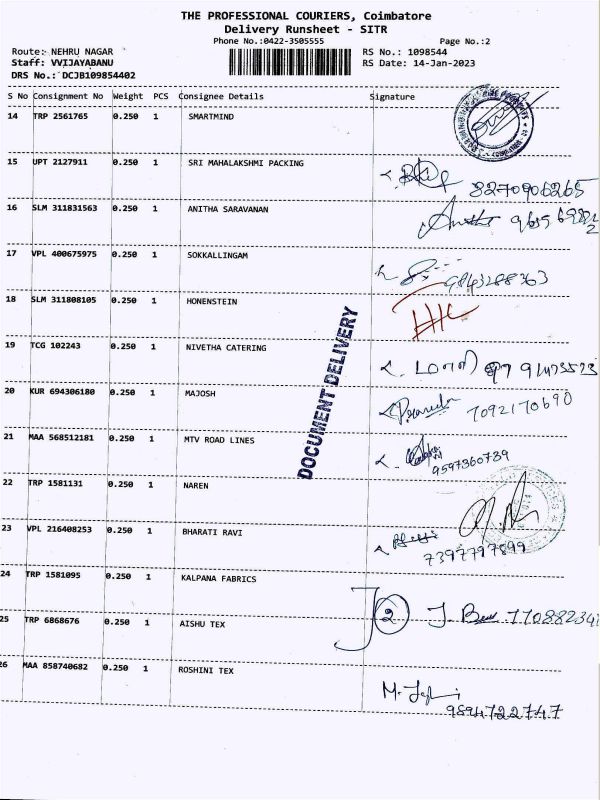 THE PROFESSIONAL COURIERS, Coimbatore
Delivery Runsheet - SITR
Phone No.:0422-3505555
Page No.:2
Route: NEHRU NAGAR
RS No.: 1098544
Staff: VVIJAYABANU
RS Date: 14-Jan-2023
DRS No.: DCJB109854402
S No Consignment No Weight PCS Consignee Details Signature
14 TRP 2561765 0.250 1 SMARTMIND
15 UPT 2127911 0.250 1 SRI MAHALAKSHMI PACKING
8270906265
16 SLM 311831563 0.250 1 ANITHA SARAVANAN
17 VPL 400675975 0.250 1 SOKKALLINGAM
9843288363
18 SLM 311808105 0.250 1 HONENSTEIN
19 TCG 102243 0.250 1 NIVETHA CATERING
DOCUMENT DELIVERY
20 KUR 694306180 0.250 1 MAJOSH
7092170690
21 MAA 568512181 0.250 1 MTV ROAD LINES
9597360739
22 TRP 1581131 0.250 1 NAREN
23 VPL 216408253 0.250 1 BHARATI RAVI
7397797899
24 TRP 1581095 0.250 1 KALPANA FABRICS
2
25 TRP 6868676 0.250 1 AISHU TEX
26 MAA 858740682 0.250 1 ROSHINI TEX
9894722747